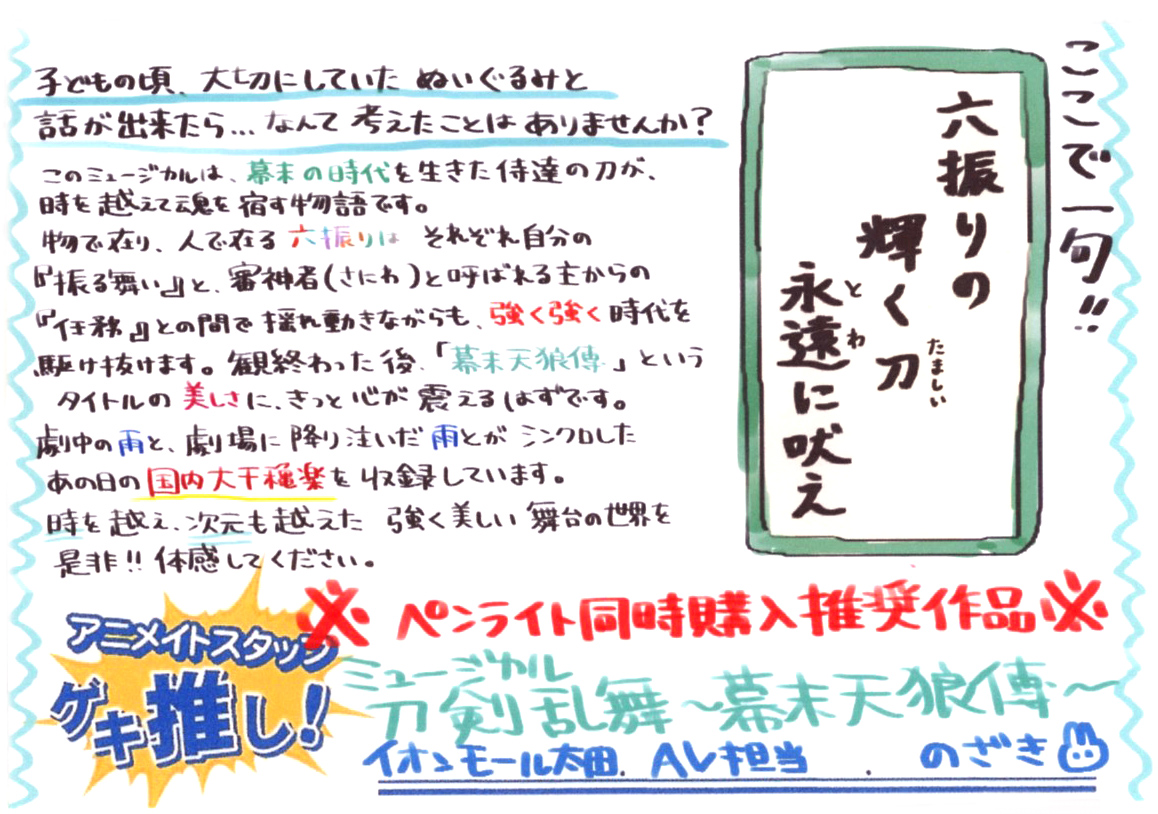 子どもの頃、大切にしていた ぬいぐるみと
話が出来たら…なんて 考えたことは ありませんか?
このミュージカルは、幕末の時代を生きた侍達の刀が、
時を越えて魂を宿す物語です。
物で在り、人で在る 六振りは それぞれ自分の
『振る舞い』と、審神者(さにわ)と呼ばれる主からの
『任務』との間で 揺れ動きながらも、強く強く 時代を
駆け抜けます。観終わった後、「幕末天狼傳」という
タイトルの 美しさに、きっと心が 震えるはずです。
劇中の雨と、劇場に降り注いだ 雨とが シンクロした
あの日の 国内大千穐楽を 収録しています。
時を越え、次元も越えた 強く美しい 舞台の世界を
是非!! 体感してください。
ここで一句!!
六振りの
輝く刀
たましい
永遠に吠え
とわ
※ ペンライト同時購入推奨作品 ※
アニメイトスタッフ
ゲキ推し!
ミュージカル
刀剣乱舞 ~幕末天狼傳~
イオンモール太田. AV担当 . のざき